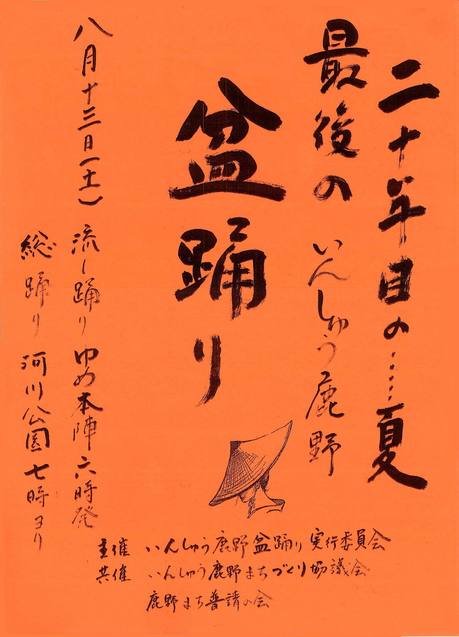 二十年目の……夏
最後の いんしゅう鹿野
盆踊り
八月十三日(土)
流し踊り ゆめ本陣 六時発
総踊り 河川公園 七時ヨリ
主催 いんしゅう鹿野盆踊り実行委員会
共催 いんしゅう鹿野まちづくり協議会
鹿野まち普請の会